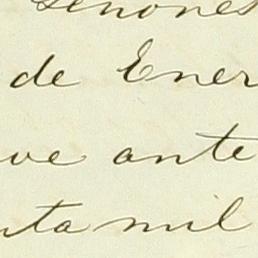 señores
de Ener
ve ante
nta mil